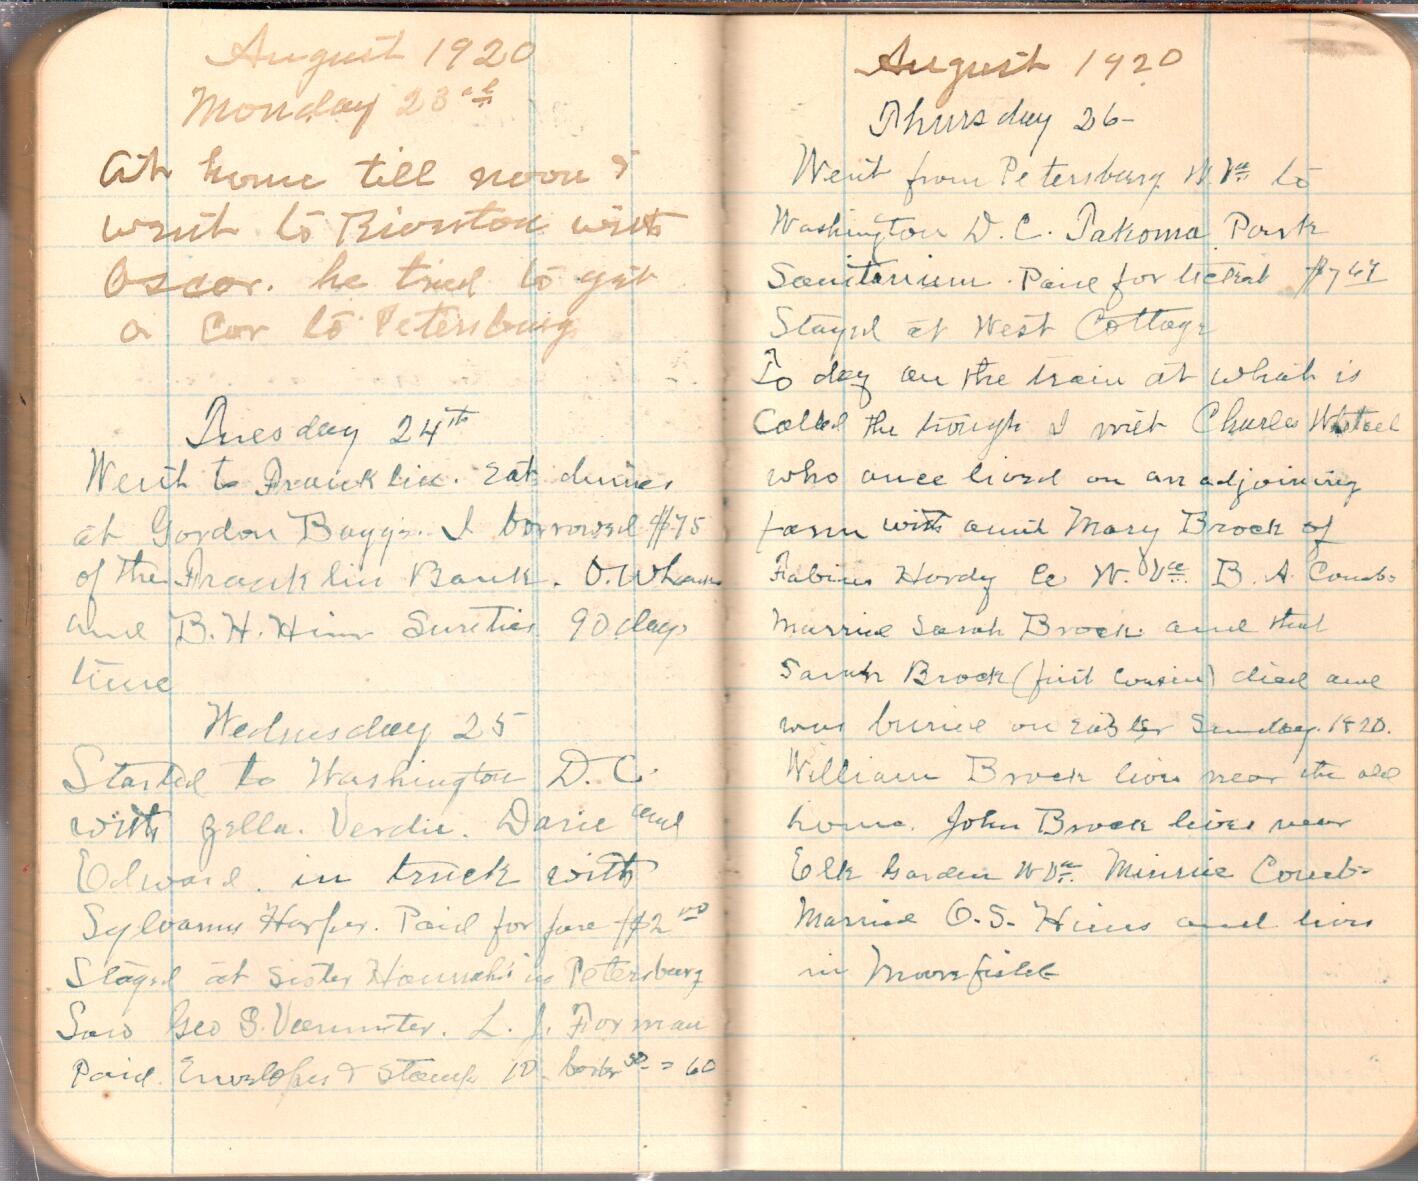 August 1920
Monday 23rd
At home till noon &
went to Riverton with
Oscar. he tried to get
a Car to Petersburg
Tuesday 24th
Went to Franklin. Eat dinner
at Gordon Boggs. I borrowed $75
of the Franklin Bank. O. W.
and B. H. Hiner Sureties 90 days
time
Wednesday 25
Started to Washington D. C.
with Zella. Verdie. Dasie and
Edward. in truck with
Sylvanus Harper. Paid for fare $2.00
Stayed at Sister Hannah's in Petersburg
Saw Geo S. Vanmeter. L. J. Forman
Paid. Envelopes & Stamp 10 - 50 = 60
August 1920
Thursday 26-
Went from Petersburg W. Va to
Washington D. C. Takoma Park
Sanitarium. Paid for ticket $7 67
Stayed at West Cottage
To day on the train at what is
Called the trough I met Charles
who once lived on an adjoining
farm with aunt Mary Brock of
Fabius Hardy Co W. Va. B. A. Combs
Married Sarah Brock. and that
Sarah Brock (first cousin) died and
was buried on Easter Sunday. 1920.
William Brock lives near the old
home. John Brock lives near
Elk Garden W Va. Minnie Comb-
Married O. S. Hines and lives
in Moorefield